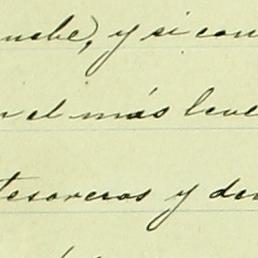 y si con
el más leve
Tesoreros y de